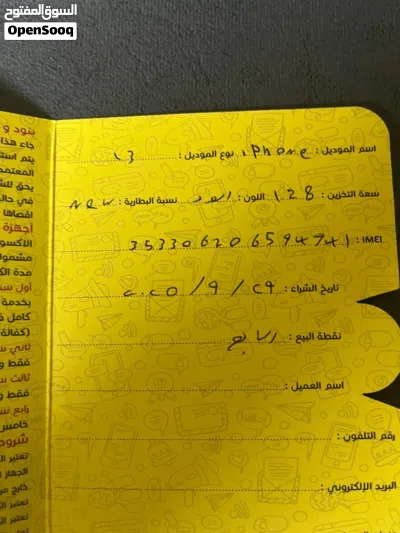 السوق المفتوح
OpenSooq
اسم الموديل : iPhone نوع الموديل : 13
سعة التخزين : 128 اللون : اسود نسبة البطارية : New
IMEI : 353306206594941
تاريخ الشراء : ٢٠٢٥ / ٩ / ٢٩
نقطة البيع :
اسم العميل :
رقم التلفون :
البريد الإلكتروني :
بنود و
جاء هذا
يتم است
المعتمد
يحق للش
في حال
اقصاها
أجهزة
الاكسو
مشمول
مدة الك
أول س
بخدمة
كامل ق
(كفالة
ثاني س
فقط و
ثالث س
فقط و
رابع س
خامس
شروط
تعتبر ال
الجهاز ا
خارج ص
تعتبر ال
تعتبر ال